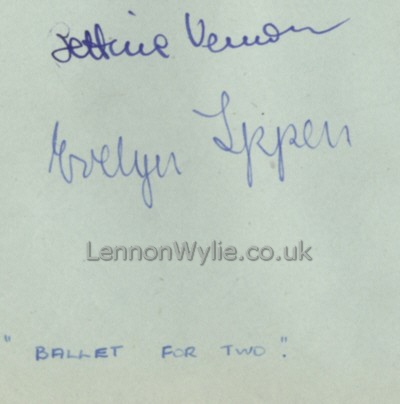 Bettina Vernon
Evelyn Ippen
LennonWylie.co.uk
"BALLET FOR TWO".